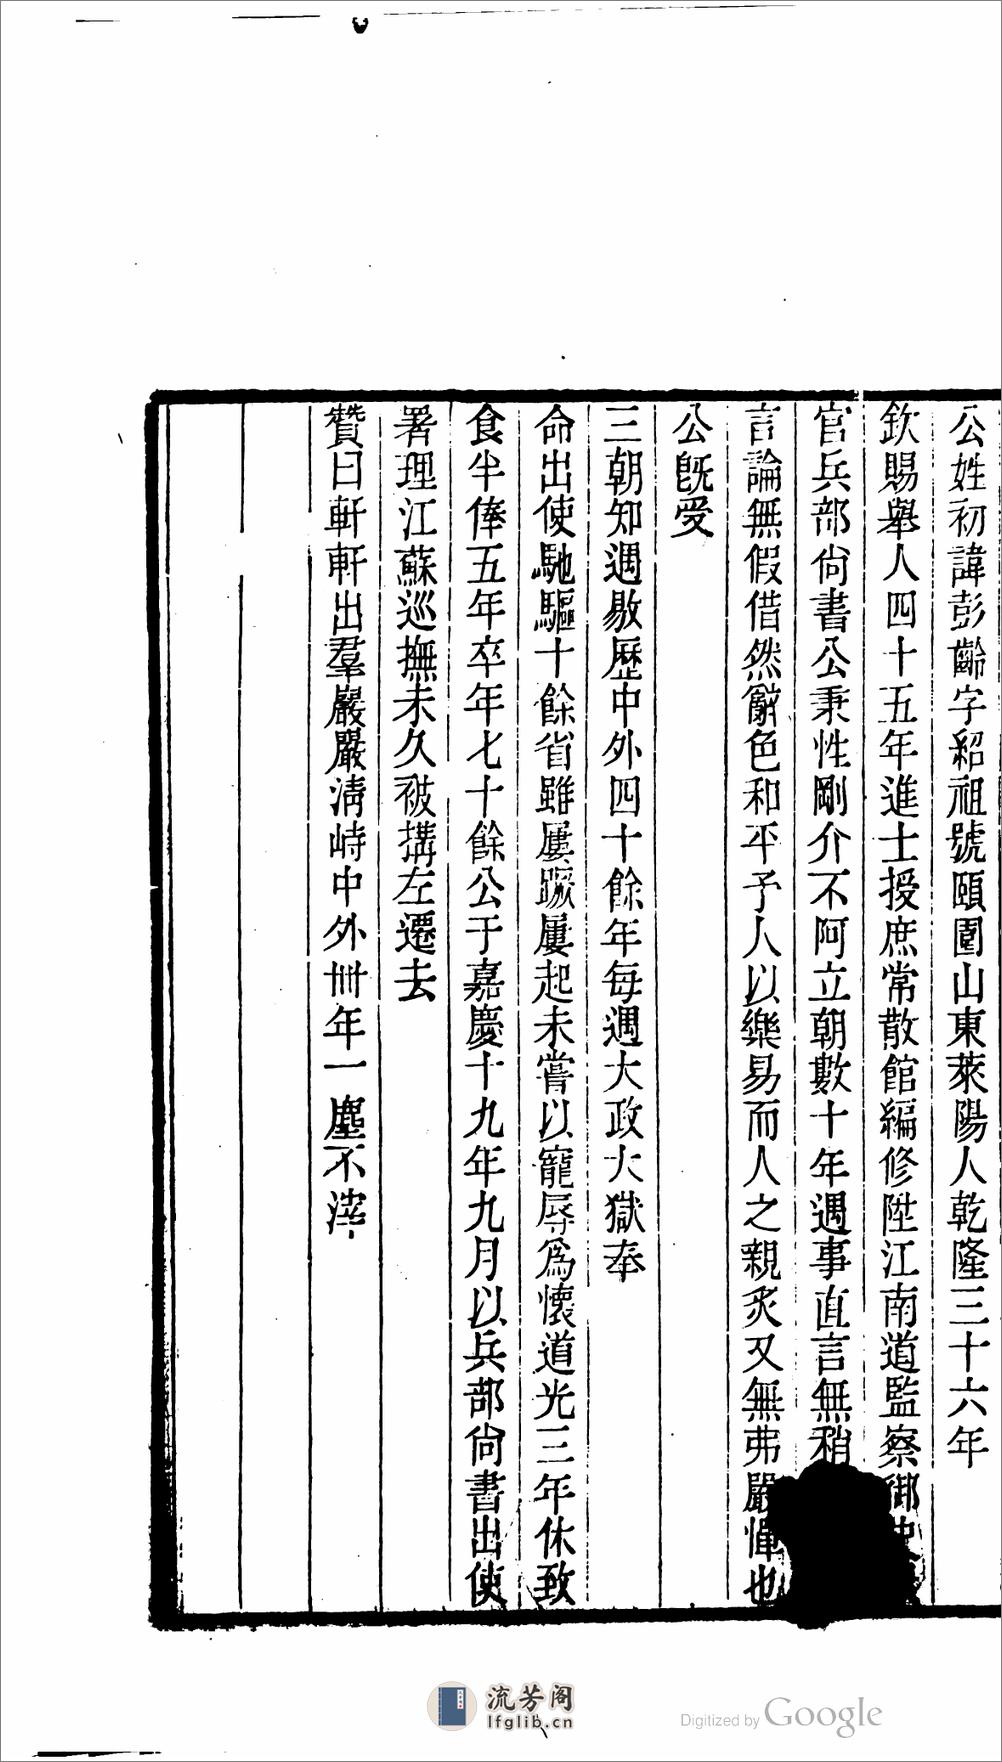 公姓初諱彭齡字紹祖號頤園山東萊陽人乾隆三十六年
欽賜舉人四十五年進士授庶常散館編修陞江南道監察御史
官兵部尙書公秉性剛介不阿立朝數十年遇事直言無稍
言論無假借然辭色和平予人以樂易而人之親炙又無弗嚴憚也
公旣受
三朝知遇敭歷中外四十餘年每遇大政大獄奉
命出使馳驅十餘省雖屢蹶屢起未嘗以寵辱爲懷道光三年休致
食半俸五年卒年七十餘公于嘉慶十九年九月以兵部尙書出使
署理江蘇巡撫未久被搆左遷去
贊曰軒軒出羣巖巖淸峙中外卌年一塵不滓
流芳阁
lfglib.cn
Digitized by Google